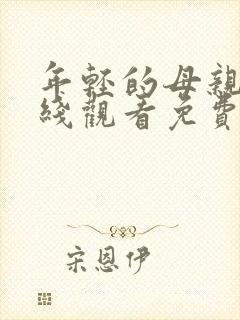 年轻的母亲
綫觀看免費
宋恩伊